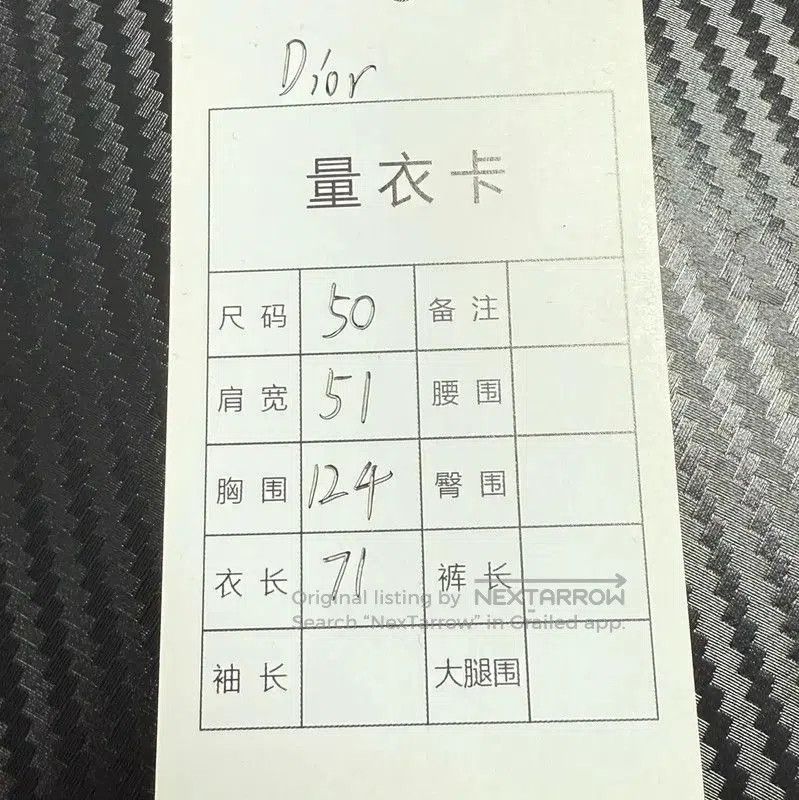 Dior
量衣卡
尺码 50 备注
肩宽 51 腰围
胸围 124 臀围
衣长 71 裤长
Original listing by NEXTARROW
Search "NexTarrow" in Grailed app.
袖长 大腿围